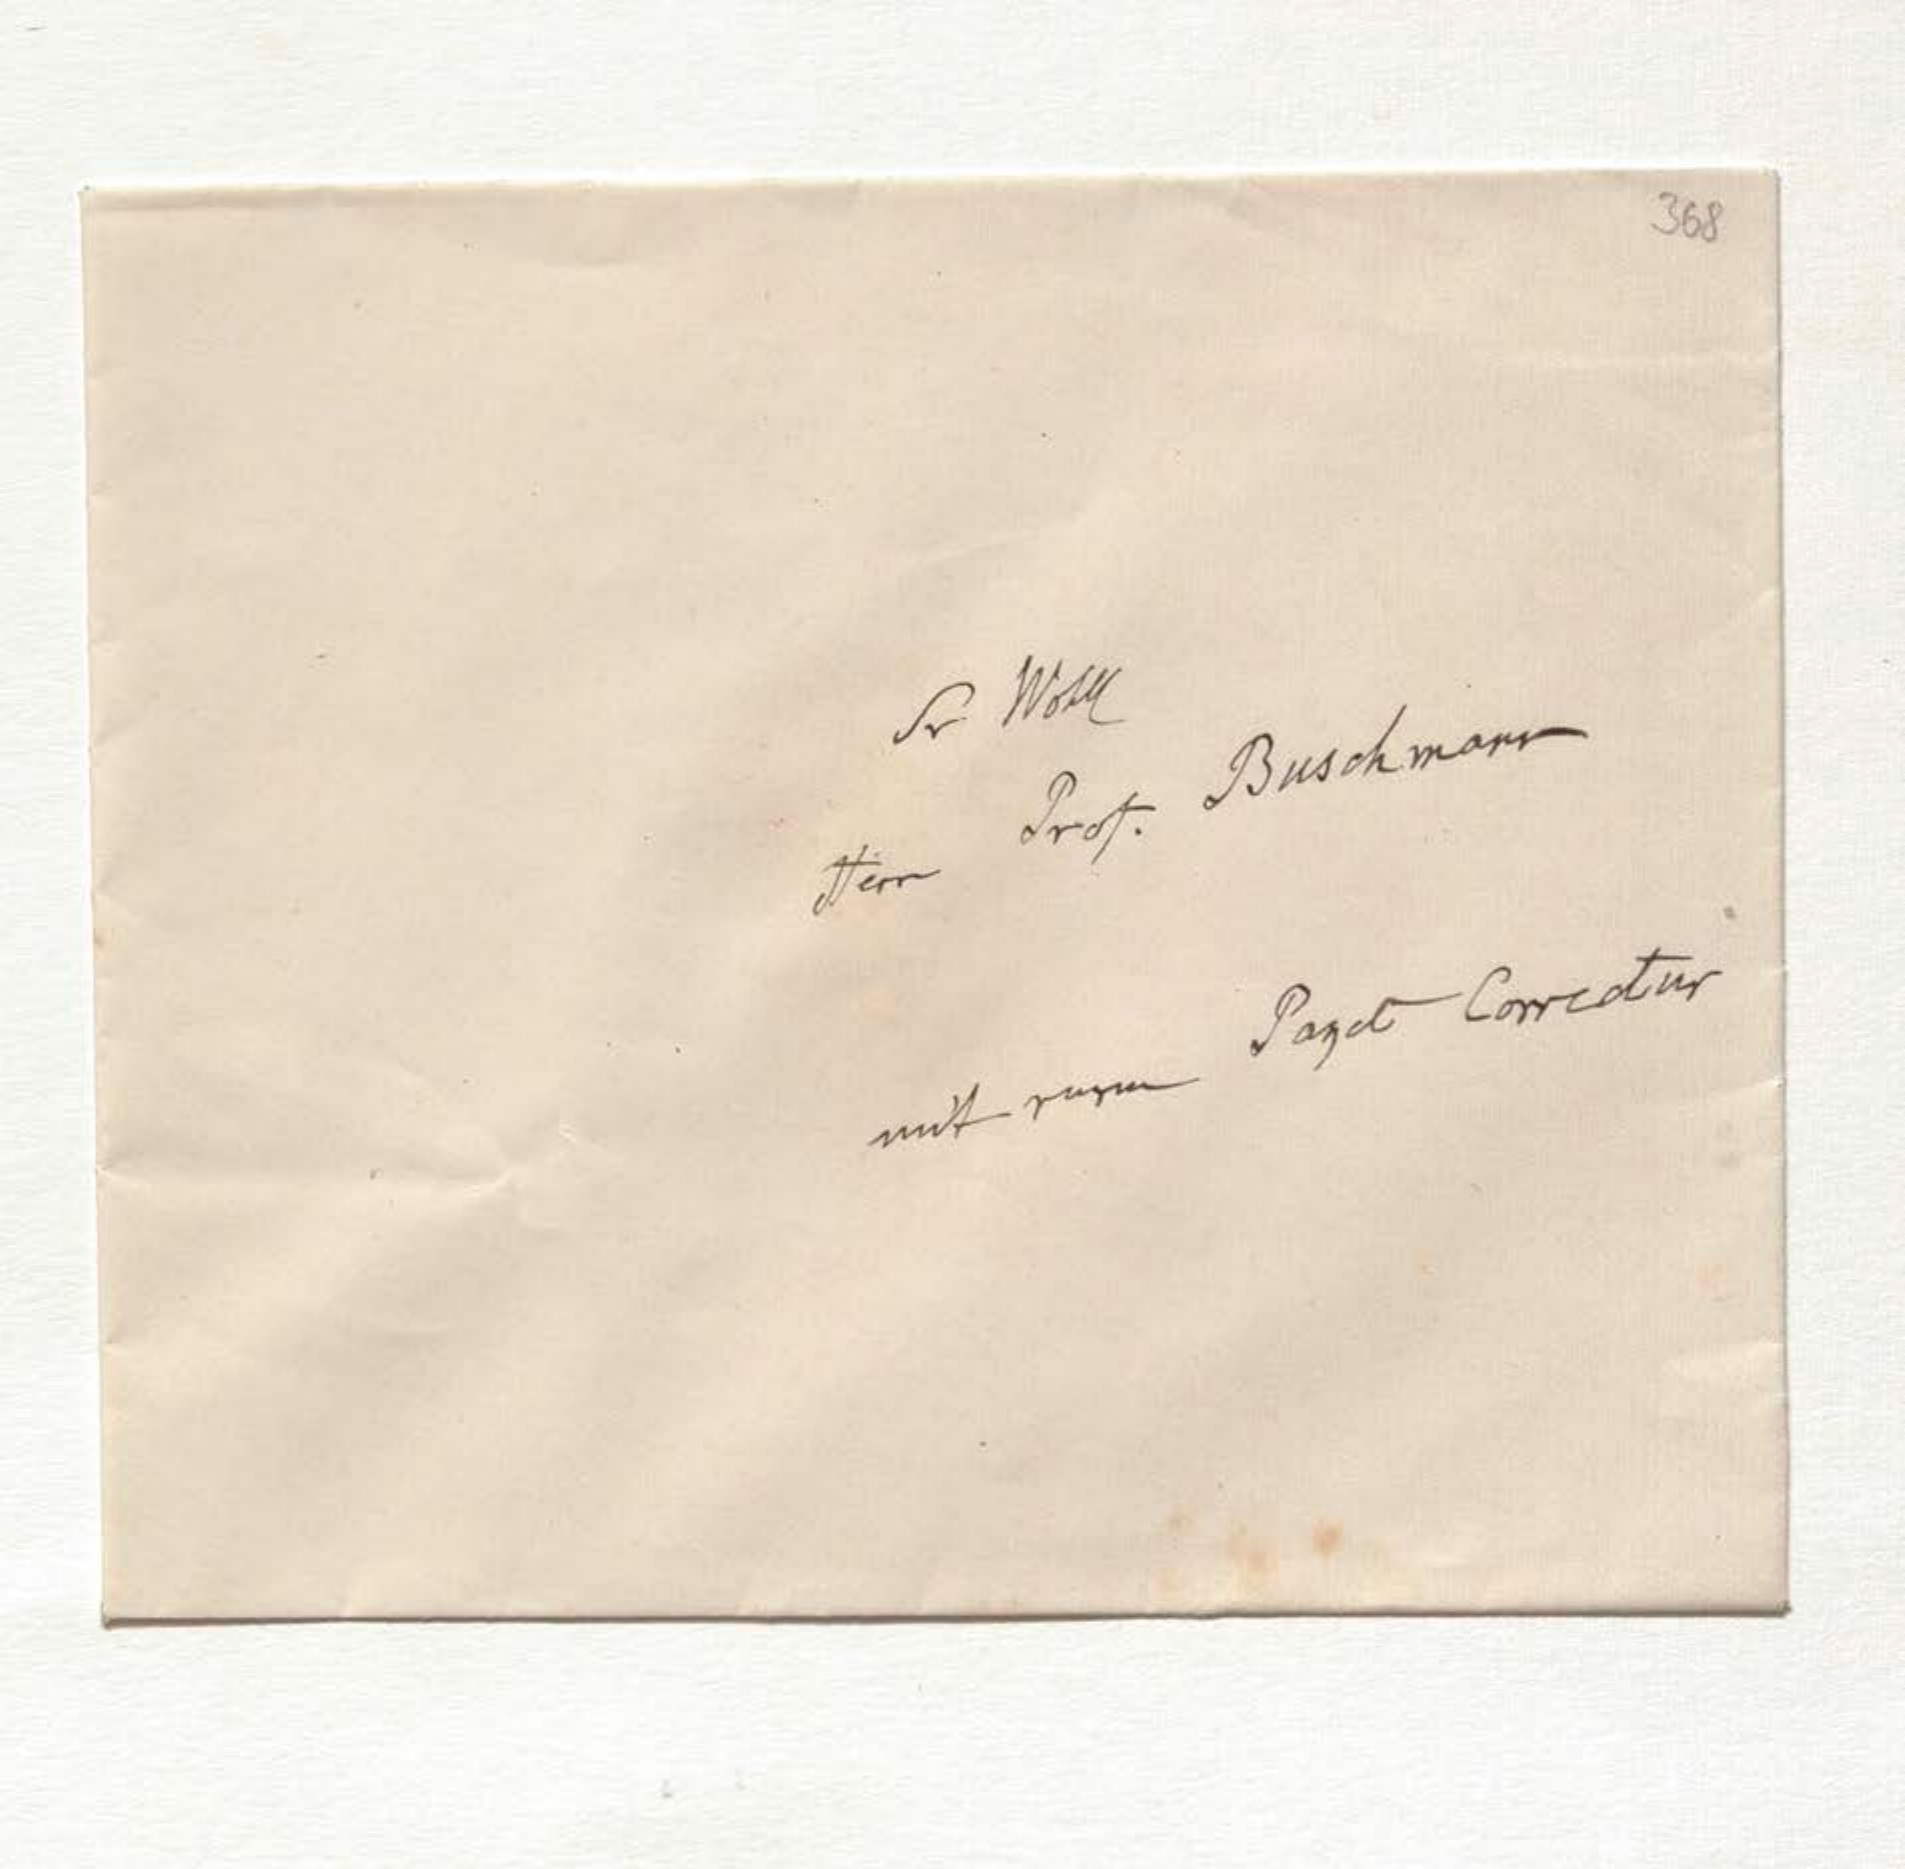 368
Sr Wohl
Herrn Prof. Buschmann
mit einem Paget Correctur